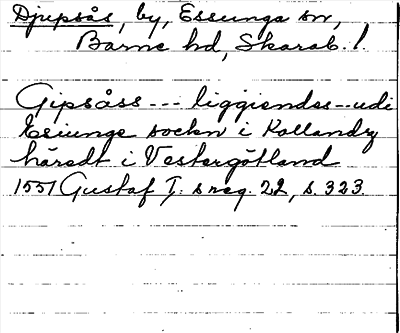 Djupsås, by, Essunga sn,
Barne hd, Skarab. l.
Gipsåss --- liggiendes -- udi
Esiunge sockn i Kollandz
häredt i Vestergötland
1551 Gustaf I: s reg. 22, s. 323.